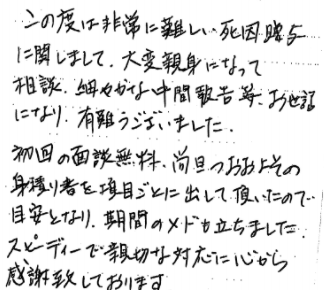 この度は非常に難しい死因贈与
に関しまして、大変親身になって
相談、細やかな中間報告等、お世話
になり、有難うございました。
初回の面談無料、尚且つおおよその
見積り書を項目ごとに出して頂いたので
目安となり、期間のメドも立ちました。
スピーディーで親切な対応に心から
感謝致しております